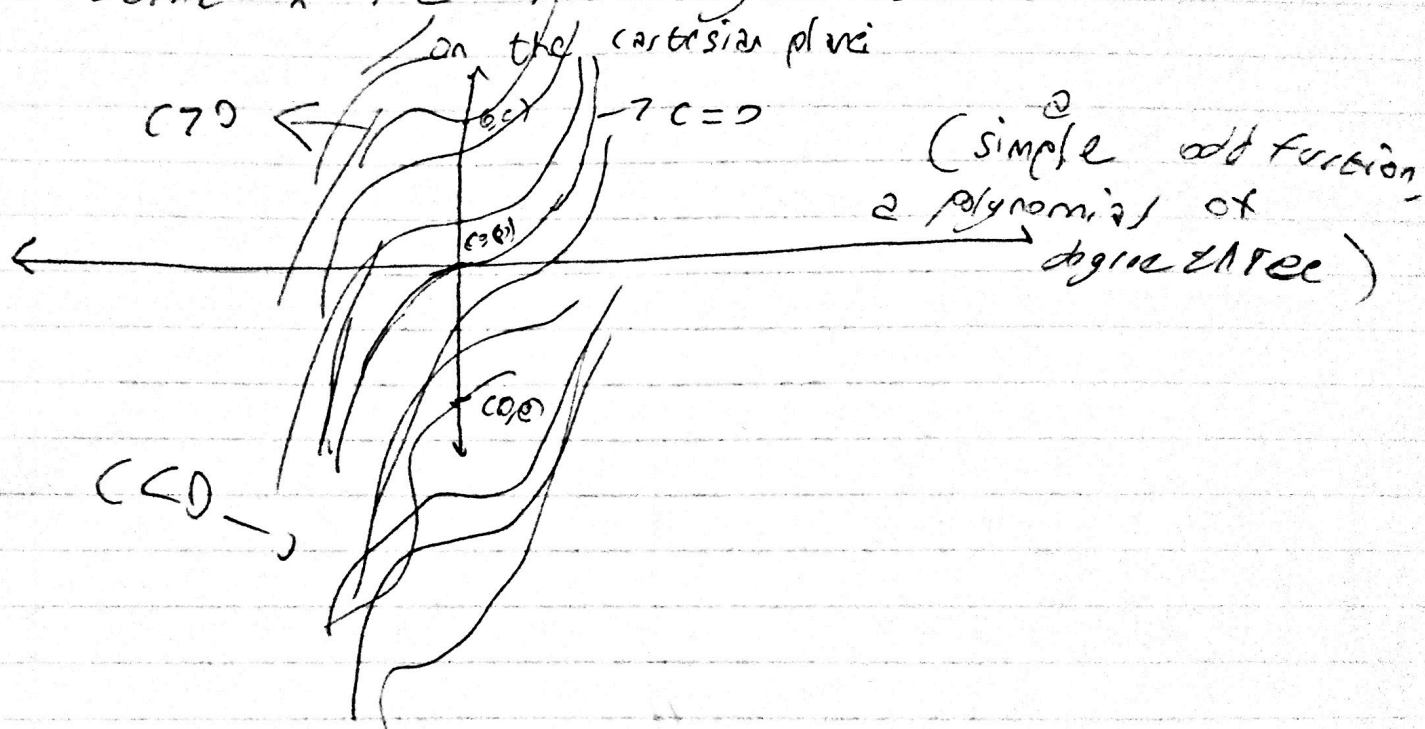 on the cartesian plane
C>0
(0,C)
→ C=0
(simple odd function,
a polynomial of
degree three)
C<0